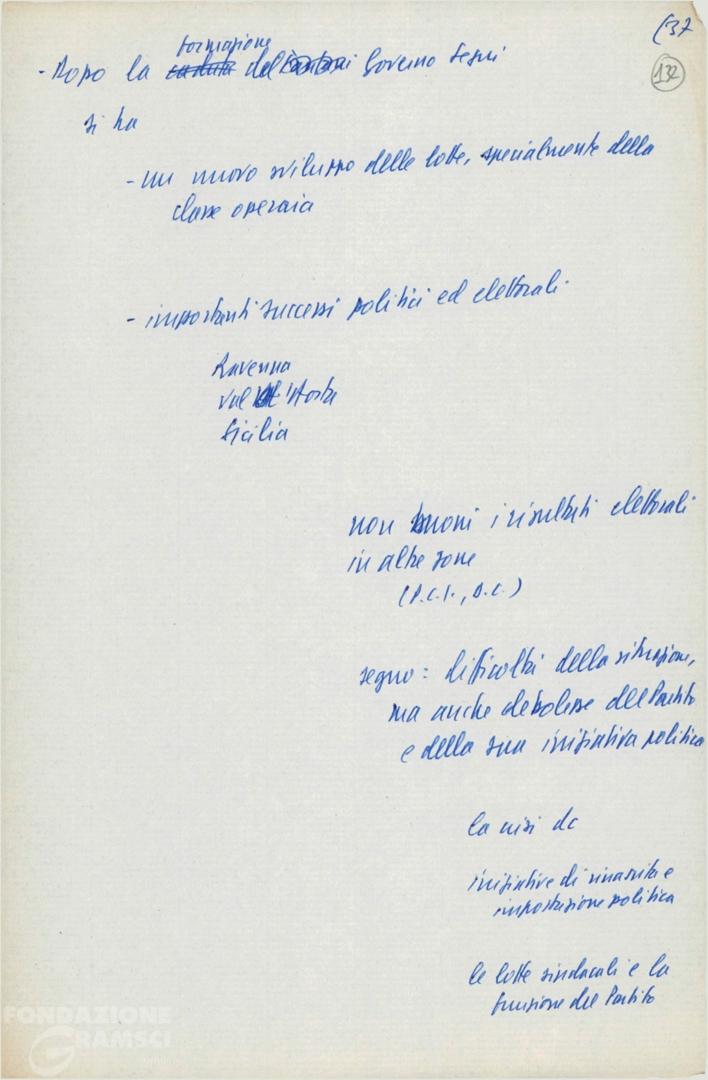 137
132
formazione
- Dopo la caduta del Governo Segni
si ha
- un nuovo sviluppo delle lotte, specialmente della
classe operaia
- importanti successi politici ed elettorali.
Ravenna
Val d'Aosta
Sicilia
non buoni i risultati elettorali
in altre zone
(P.C.I., D.C.)
segno: difficoltà della situazione,
ma anche debolezze del Partito
e della sua iniziativa politica
la crisi dc
iniziative di rinascita e
impostazione politica
le lotte sindacali e la
funzione del Partito
FONDAZIONE
GRAMSCI